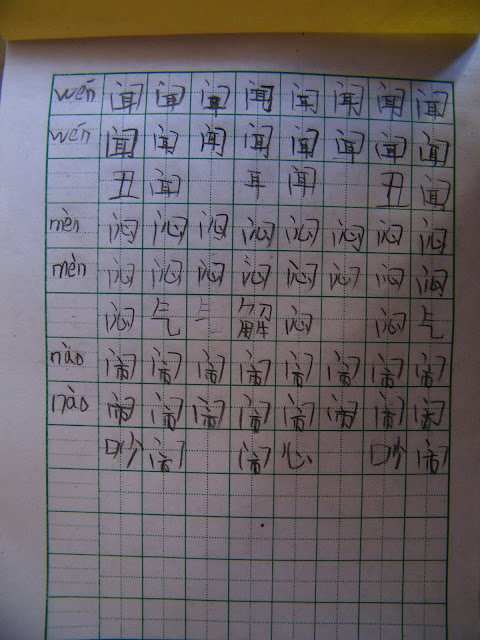 wén 闻 闻 闻 闻 闻 闻 闻 闻
wén 闻 闻 闻 闻 闻 闻 闻 闻
丑 闻 耳 闻 丑 闻
mèn 闷 闷 闷 闷 闷 闷 闷 闷
mèn 闷 闷 闷 闷 闷 闷 闷 闷
闷 气 解 闷 闷 气
nào 闹 闹 闹 闹 闹 闹 闹 闹
nào 闹 闹 闹 闹 闹 闹 闹 闹
吵 闹 闹 心 吵 闹